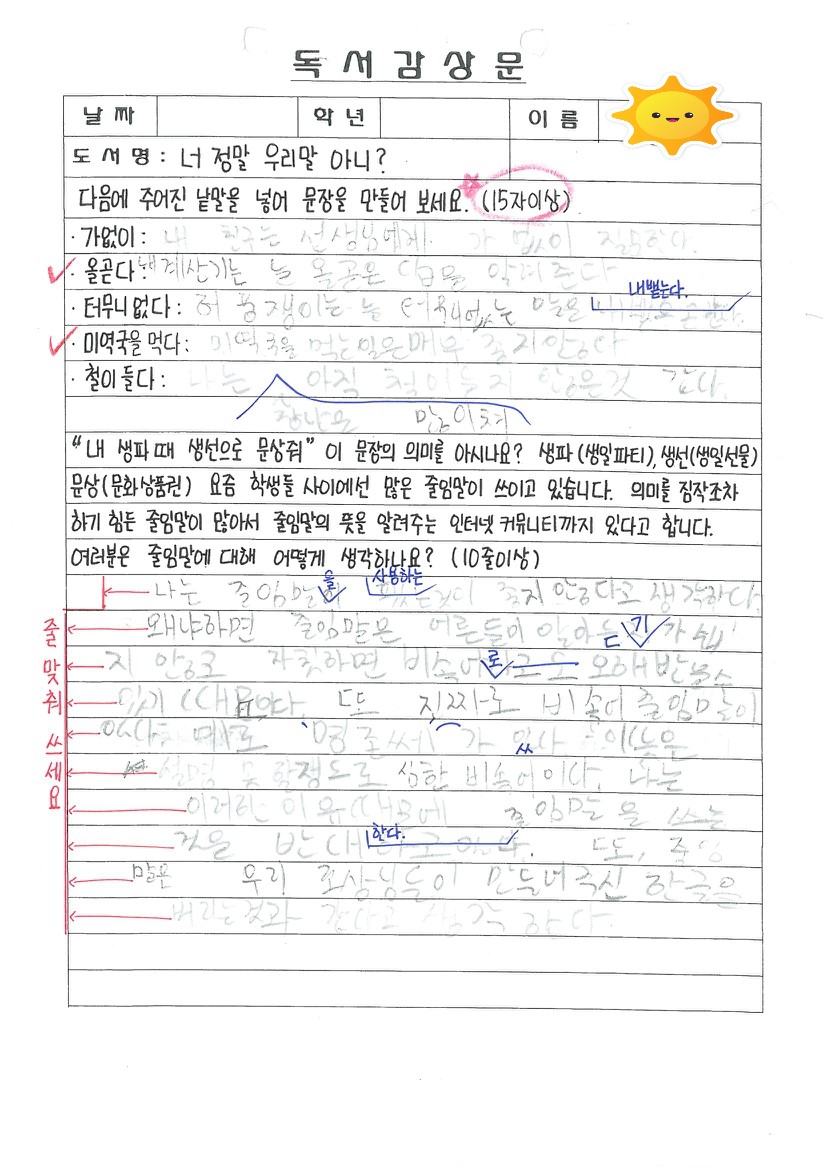 독서감상문
날짜 학년 이름
도서명: 너 정말 우리말 아니?
다음에 주어진 낱말을 넣어 문장을 만들어 보세요. (15자이상)
·가없이: 내 친구는 선생님에게 가 없이 질문한다.
·올곧다: 내계산기는 늘 올곧은 답을 알려준다
내뱉는다.
·터무니없다: 허풍쟁이는 늘 터무니없는 말을
·미역국을 먹다: 미역국을 먹는일은매우 좋지안하다
·철이들다: 나는 아직 철이들지 않은것 같다.
장난은
"내 생파때 생선으로 문상줘" 이 문장의 의미를 아시나요? 생파(생일파티), 생선(생일선물)
문상(문화상품권) 요즘 학생들 사이에선 많은 줄임말이 쓰이고 있습니다. 의미를 짐작조차
하기 힘든 줄임말이 많아서 줄임말의 뜻을 알려주는 인터넷 커뮤니티까지 있다고 합니다.
여러분은 줄임말에 대해 어떻게 생각하나요? (10줄이상)
을 사용하는
나는 줄임말 좋지 안하다고 생각한다.
왜냐하면 줄임말은 어른들이 알아듣기가 쉽
지 안하고 자칫하면 비속어로 오해받을수
있기 때문이다. 또또 진짜로 비속어 줄임말이
있다
설명 못할정도로 심한 비속어이다. 나는
이러한 이유때문에 줄임말을 쓰는
것을 반대한다. 또또, 줄임
말은 우리 조상님들이 만들어주신 한글을
버리는것과 같다고 생각 한다.
줄 맞춰 쓰세요